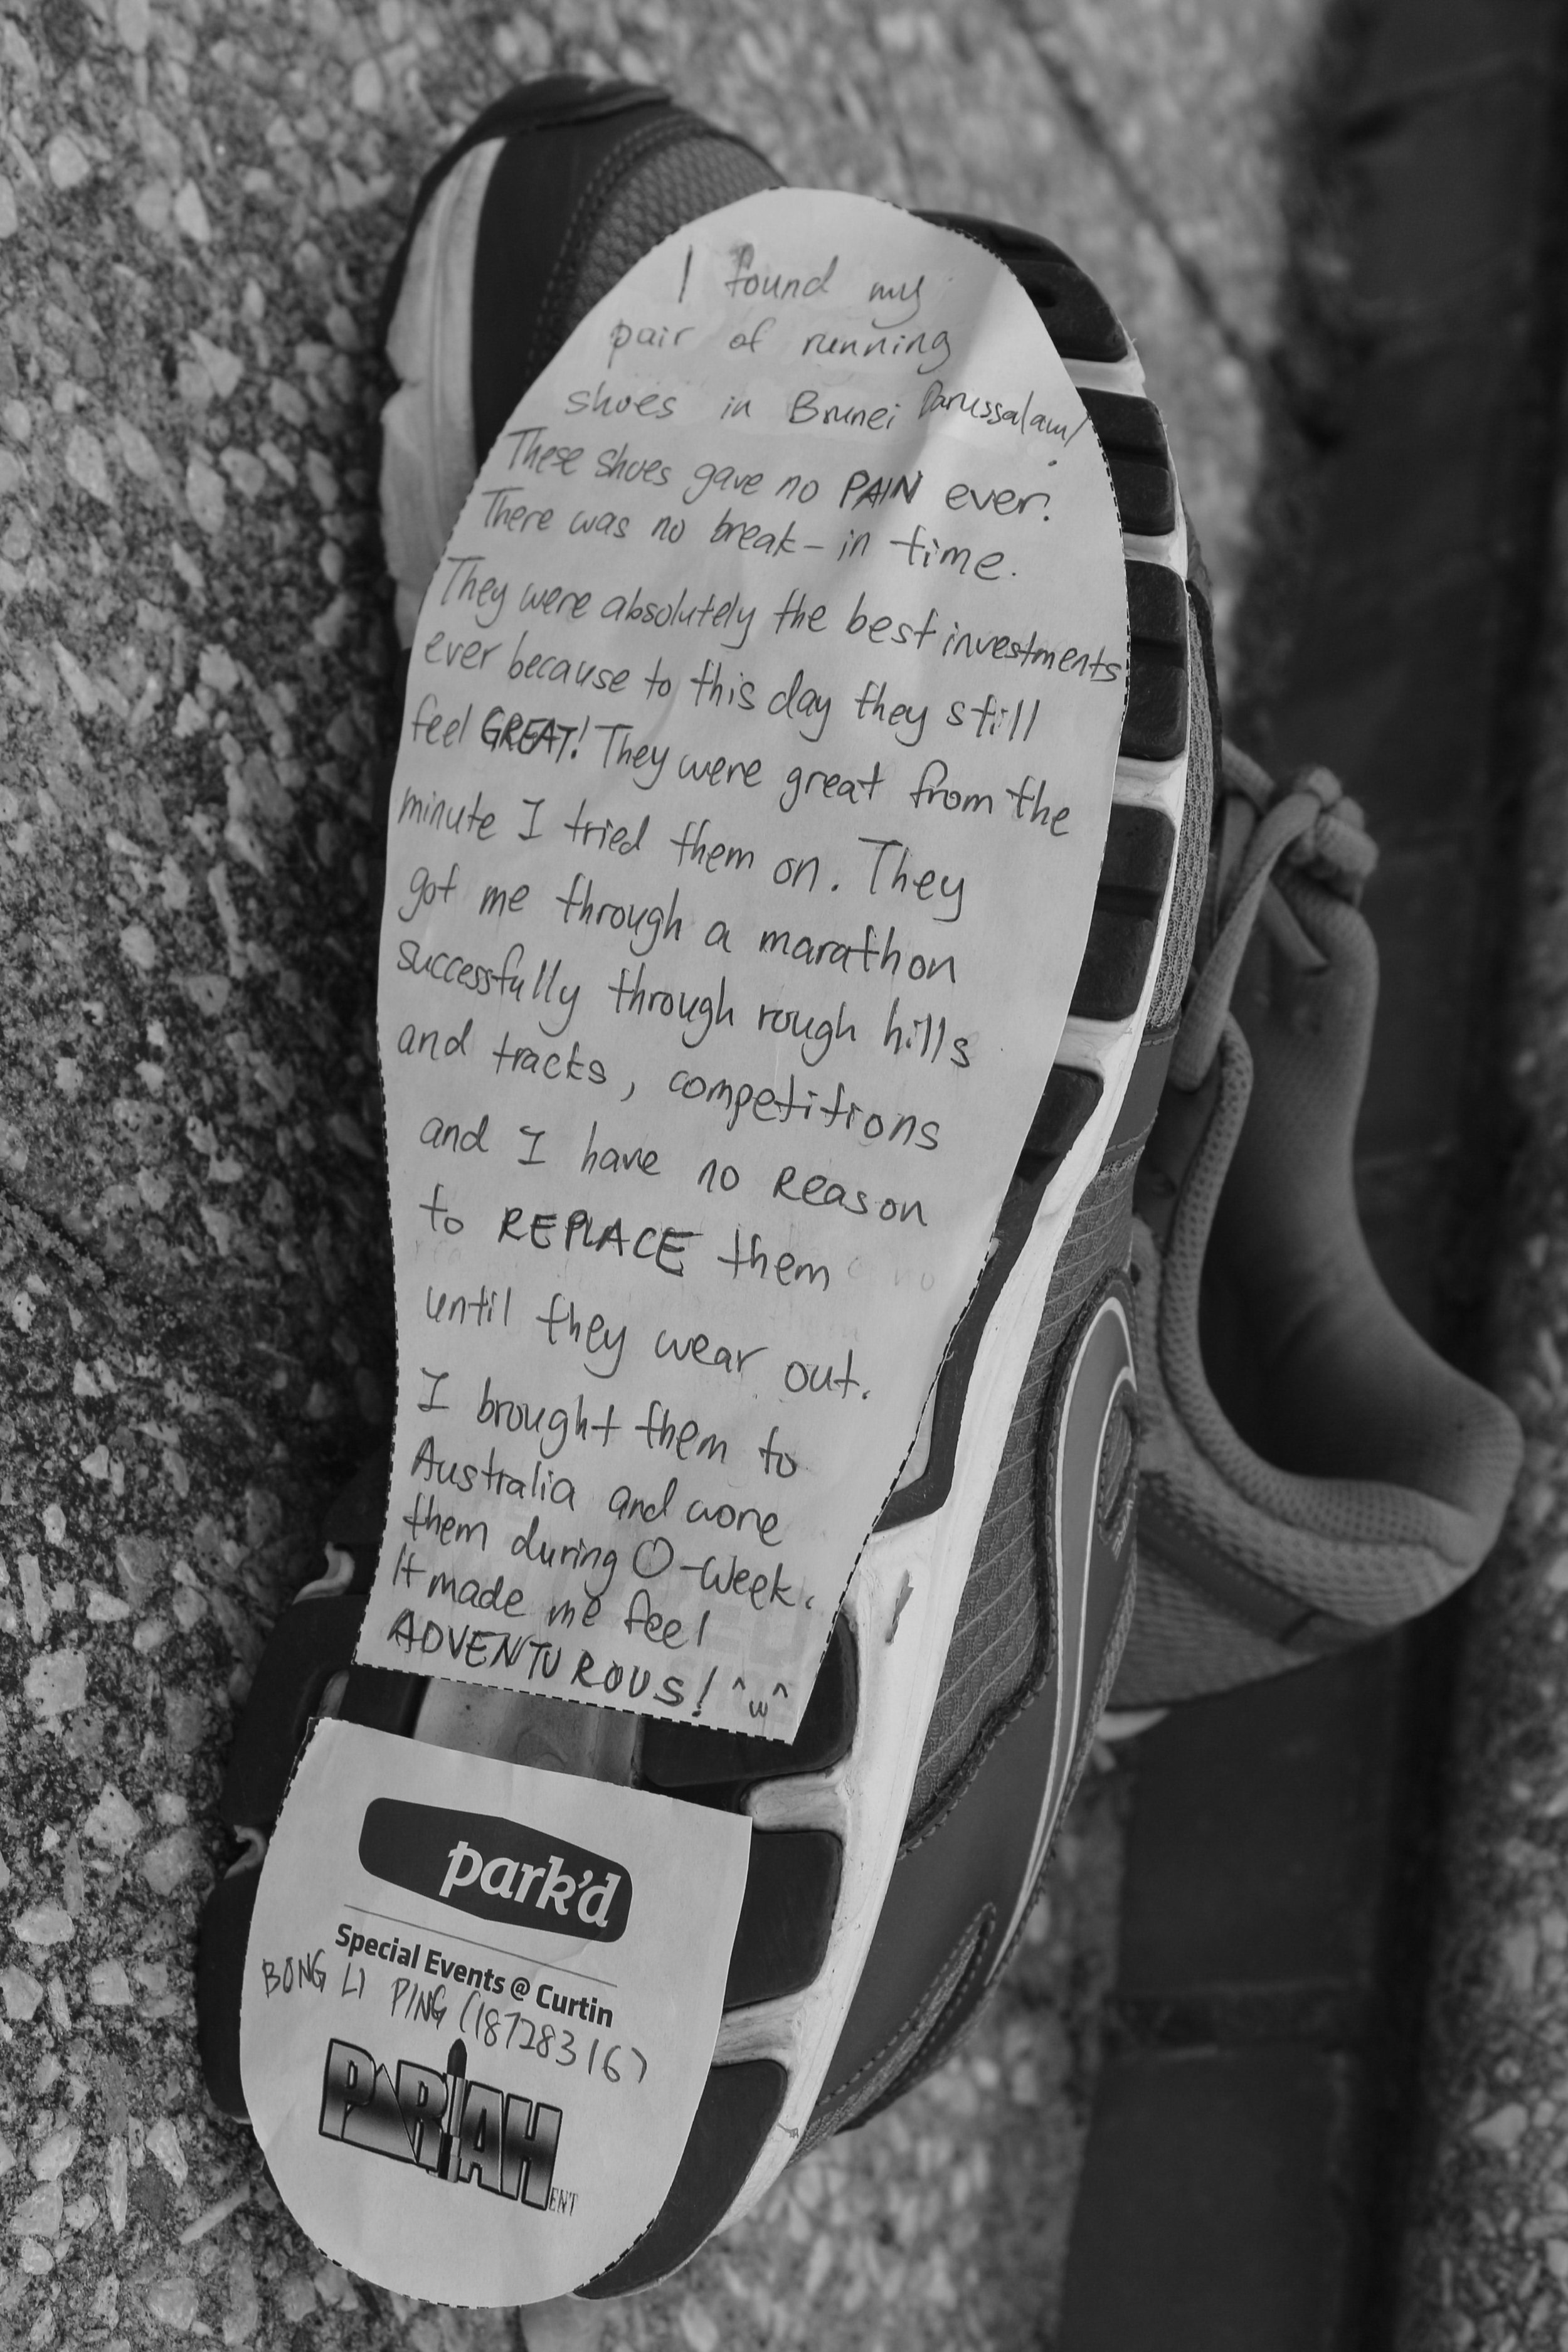 I found my
pair of running
shoes in Brunei Darussalam!
These shoes gave no PAIN ever.
There was no break-in time.
They were absolutely the best investments
ever because to this day they still
feel GREAT! They were great from the
minute I tried them on. They
got me through a marathon
successfully through rough hills
and tracks, competitions
and I have no reason
to REPLACE them
until they wear out.
I brought them to
Australia and wore
them during O-Week.
It made me feel
ADVENTUROUS! ^w^
park'd
Special Events @ Curtin
BONG LI PING (18728316)
PARIAH
ENT